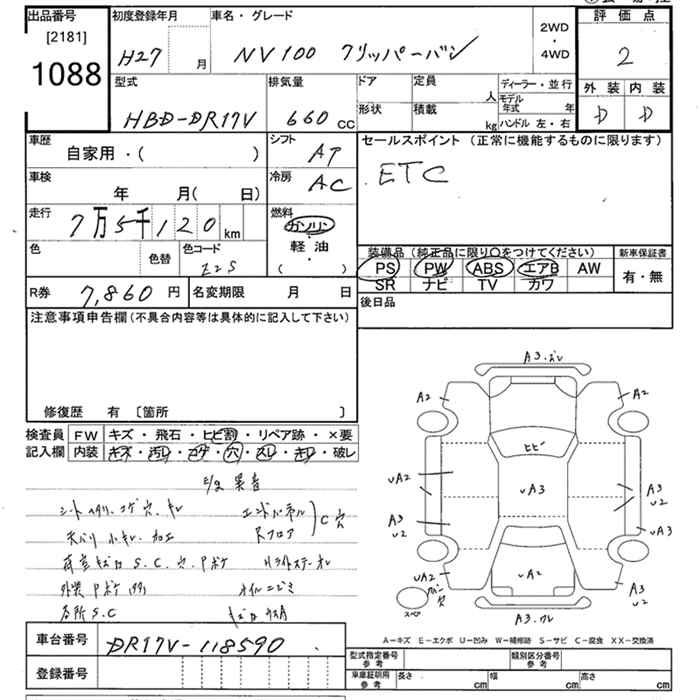 出品番号
[2181]
1088
初度登録年月
H27 月
車名・グレード
NV100 クリッパーバン
2WD
・
4WD
評価点
2
外装 内装
D D
型式
HBD-DR17V
排気量
660 cc
ドア
定員
人
ディーラー・並行
モデル年式 年
形状
積載
kg
ハンドル 左・右
車歴
自家用・( )
シフト
AT
車検
年 月( 日)
冷房
AC
走行
7万5千120 km
燃料
ガソリン
・
軽油
( )
色
色替
色コード
Z2S
セールスポイント (正常に機能するものに限ります)
ETC
装備品 (純正品に限り○をつけてください)
PS PW ABS エアB AW
SR ナビ TV カワ
新車保証書
有・無
R券 7,860 円
名変期限 月 日
後日品
注意事項申告欄 (不具合内容等は具体的に記入して下さい)
修復歴 有 〔箇所 〕
検査員
記入欄
FW キズ・飛石・ヒビ割・リペア跡・×要
内装 キズ・汚レ・コゲ・穴・スレ・キレ・破レ
シートヘタリ、コゲ穴、キレ
天バリ 小キレ 加工
外装 Pボケ
各所 S.C
エンドパネル
Rフロア
C穴
オイルニジミ
A3.オレ
A2
A2
ヒビ
vA2
vA3
A3
v2
A3
v2
vA3
vA2
vA2
A3
v2
スペア
パンク
穴
A3.ワレ
A-キズ E-エクボ U-凹み W-補修跡 S-サビ C-腐食 XX-交換済
車台番号 DR17V-118590
登録番号
型式指定番号
参考
類別区分番号
参考
車庫証明用
参考
長さ cm
幅 cm
高さ cm